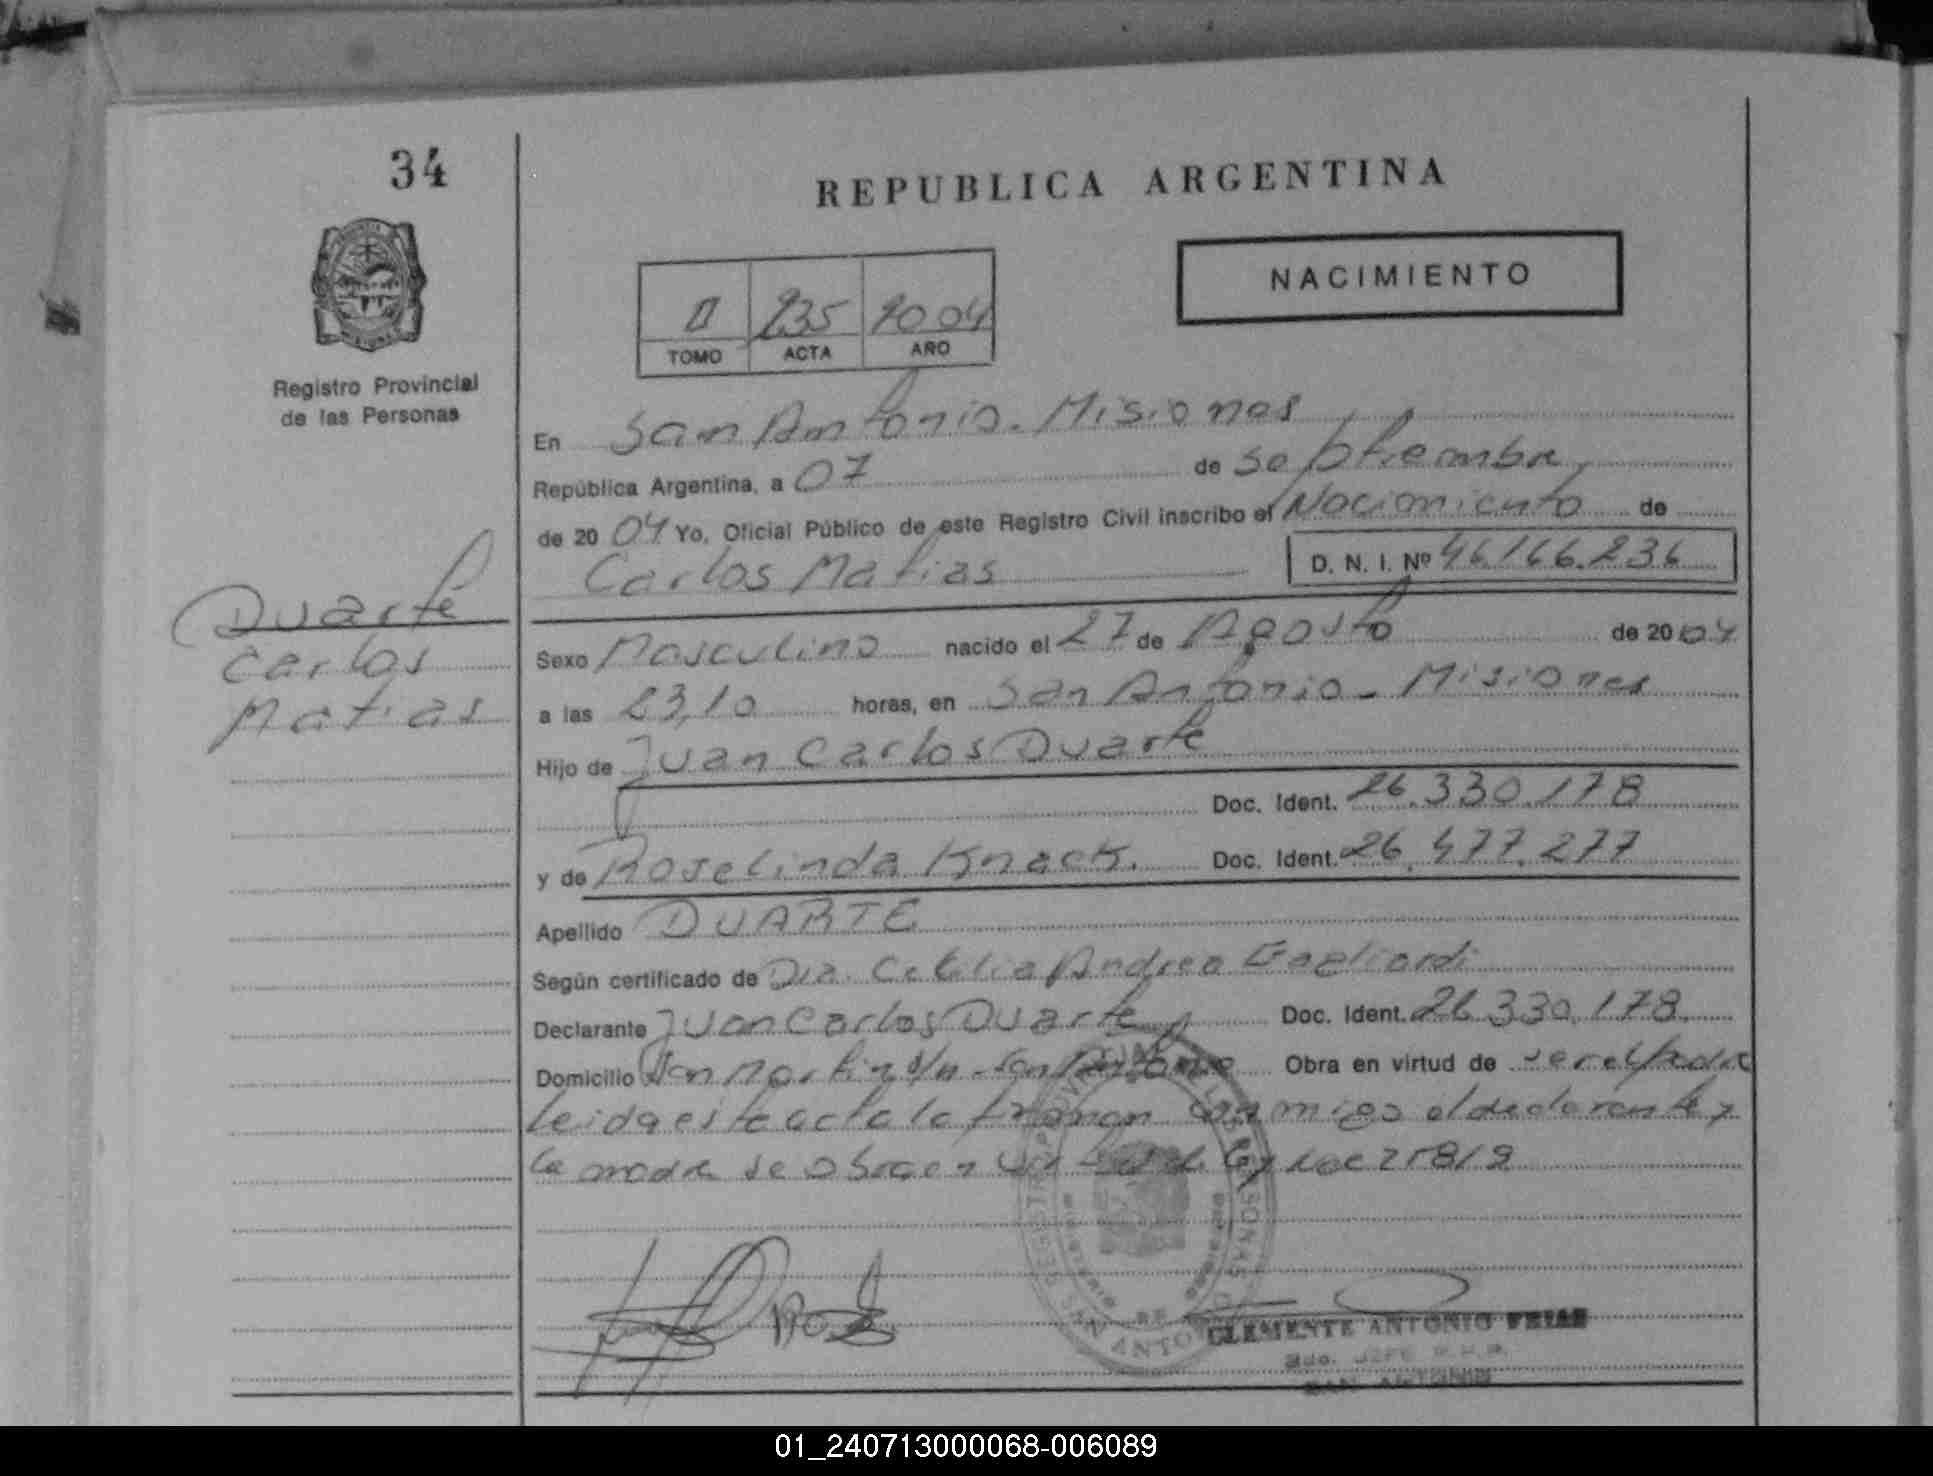 34
REPUBLICA ARGENTINA
NACIMIENTO
II 235 2004
TOMO ACTA AÑO
Registro Provincial
de las Personas
En San Antonio - Misiones
República Argentina, a 07 de Septiembre
de 20 04 Yo, Oficial Público de este Registro Civil inscribo el Nacimiento de
Carlos Matias D. N. I. Nº 46.166.236
Duarte
Carlos
Matias
Sexo Masculino nacido el 27 de Agosto de 20 04
a las 23,10 horas, en San Antonio - Misiones
Hijo de Juan Carlos Duarte
Doc. Ident. 26.330.178
y de Roselinda Knack. Doc. Ident. 26.477.277
Apellido DUARTE
Según certificado de Dra. Cecilia Andrea Gagliardi
Declarante Juan Carlos Duarte Doc. Ident. 26.330.178
Domicilio San Martin s/n - San Antonio Obra en virtud de ser el padre
leida este acta la firman conmigo el declarante y
la madre se obra en virtud de Ley
SAN ANTONIO
CLEMENTE ANTONIO
SAN ANTONIO
01_240713000068-006089